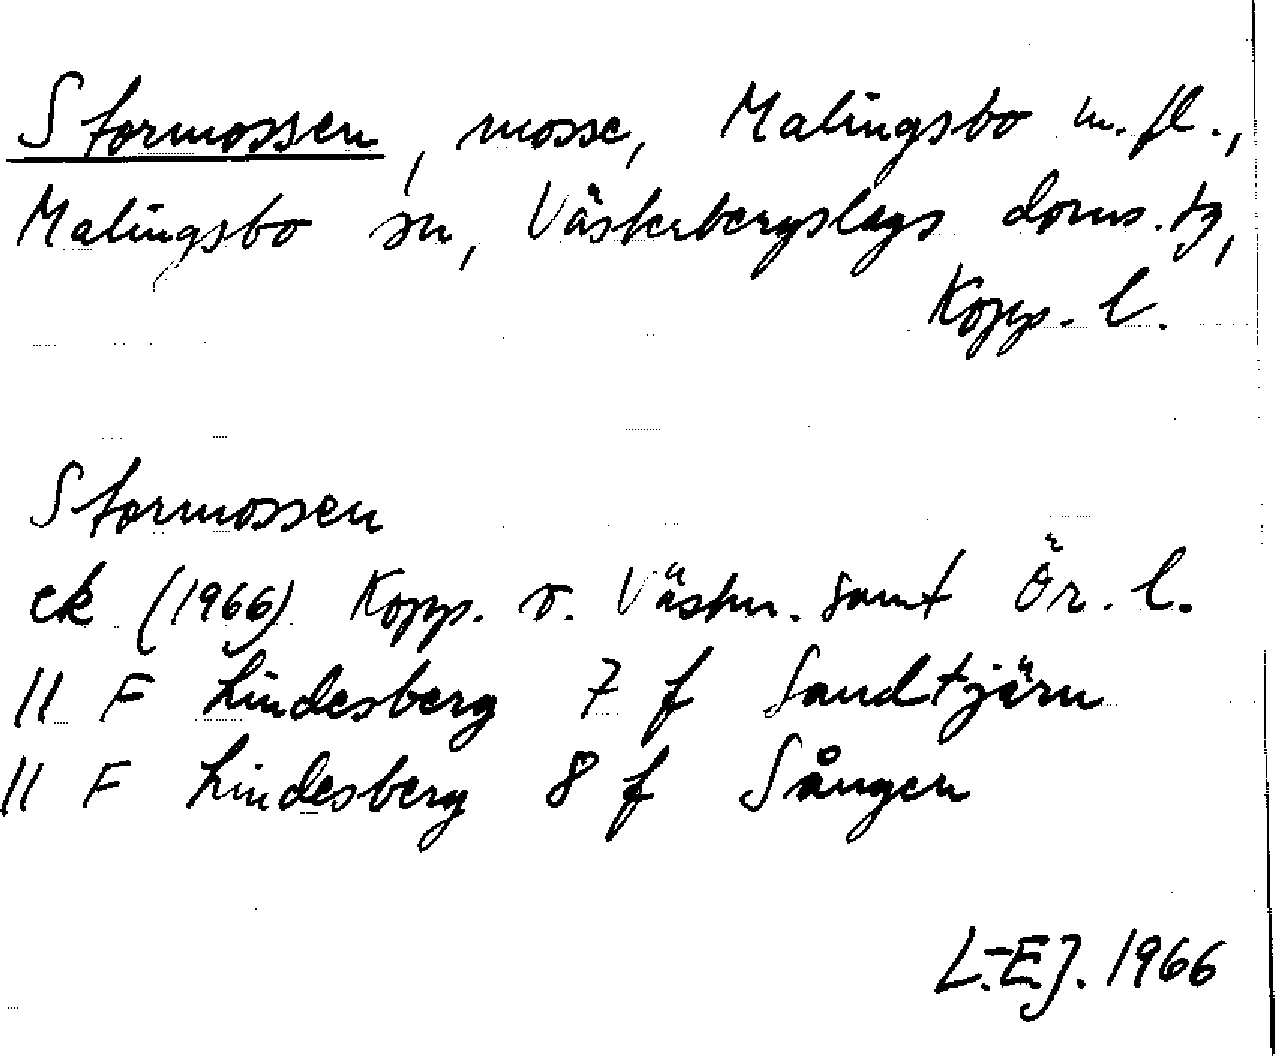 Stormossen, mosse, Malingsbo m. fl.,
Malingsbo sn, Västerbergslags doms. tg,
Kopp. l.
Stormossen
ek (1966) Kopp. o. Västm. samt Ör. l.
11 F Lindesberg 7 f Sandtjärn
11 F Lindesberg 8 f Sången
L.-E.J. 1966